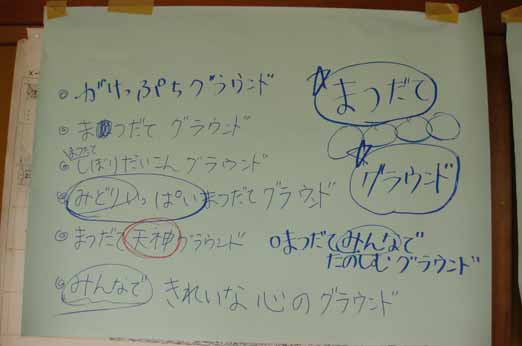 ◎ がけっぷちグラウンド
◎ まつだて グラウンド
まつだて
◎ しばりだいこん グラウンド
◎ みどりいっぱい まつだて グラウンド
◎ まつだて 天神 グラウンド
◎ みんなで きれいな 心の グラウンド
☆ まつだて
☆ グラウンド
○まつだて みんなで
たのしむ グラウンド